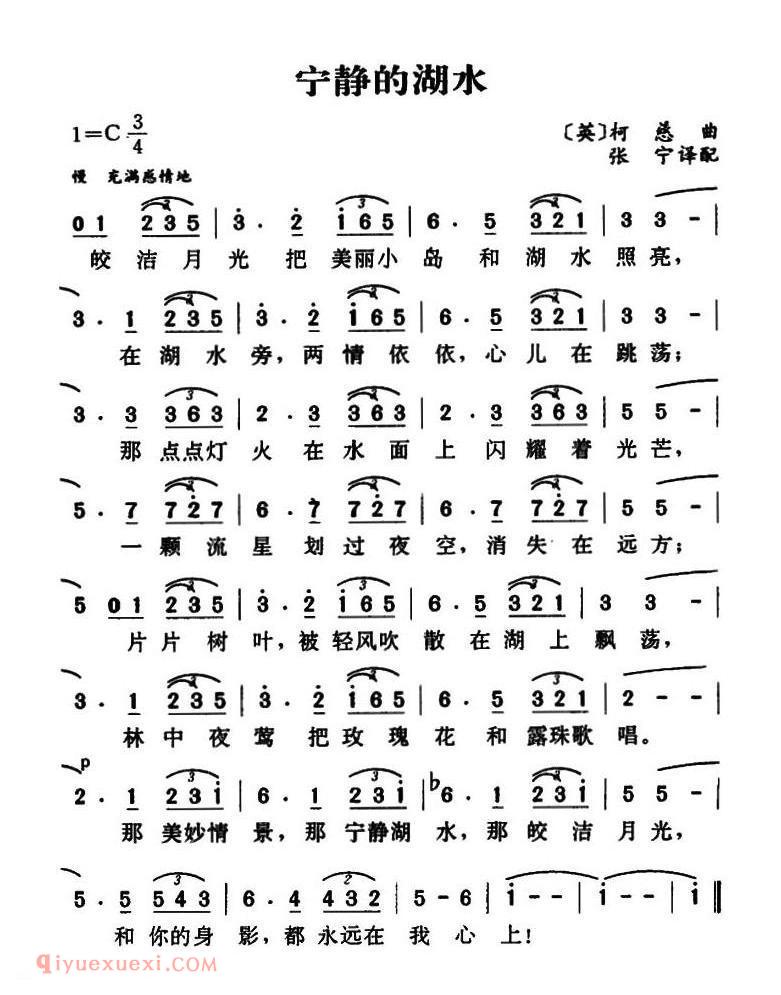 宁静的湖水
1=C 3/4
〔英〕柯 慈 曲
张 宁 译配
慢 充满感情地
0 1 2 3 5 | 3 · 2 1 6 5 | 6 · 5 3 2 1 | 3 3 - |
皎 洁 月 光 把 美丽小 岛 和 湖 水 照 亮,
3 · 1 2 3 5 | 3 · 2 1 6 5 | 6 · 5 3 2 1 | 3 3 - |
在 湖 水 旁, 两 情 依 依, 心 儿 在 跳 荡;
3 · 3 3 6 3 | 2 · 3 3 6 3 | 2 · 3 3 6 3 | 5 5 - |
那 点点灯 火 在 水 面 上 闪 耀 着 光 芒,
5 · 7 7 2 7 | 6 · 7 7 2 7 | 6 · 7 7 2 7 | 5 5 - |
一 颗 流 星 划 过 夜 空, 消 失 在 远 方;
5 0 1 2 3 5 | 3 · 2 1 6 5 | 6 · 5 3 2 1 | 3 3 - |
片 片 树 叶, 被 轻风吹 散 在 湖 上 飘 荡,
3 · 1 2 3 5 | 3 · 2 1 6 5 | 6 · 5 3 2 1 | 2 - - |
林 中 夜 莺 把 玫 瑰 花 和 露珠歌 唱。
p
2 · 1 2 3 1 | 6 · 1 2 3 1 | ♭6 · 1 2 3 1 | 5 5 - |
那 美妙情 景, 那 宁静湖 水, 那 皎 洁 月 光,
5 · 5 5 4 3 | 6 · 4 4 3 2 | 5 - 6 | 1 - - | 1 - ‖
和 你的身 影, 都 永远在 我 心 上!
qiyuexuexi.com